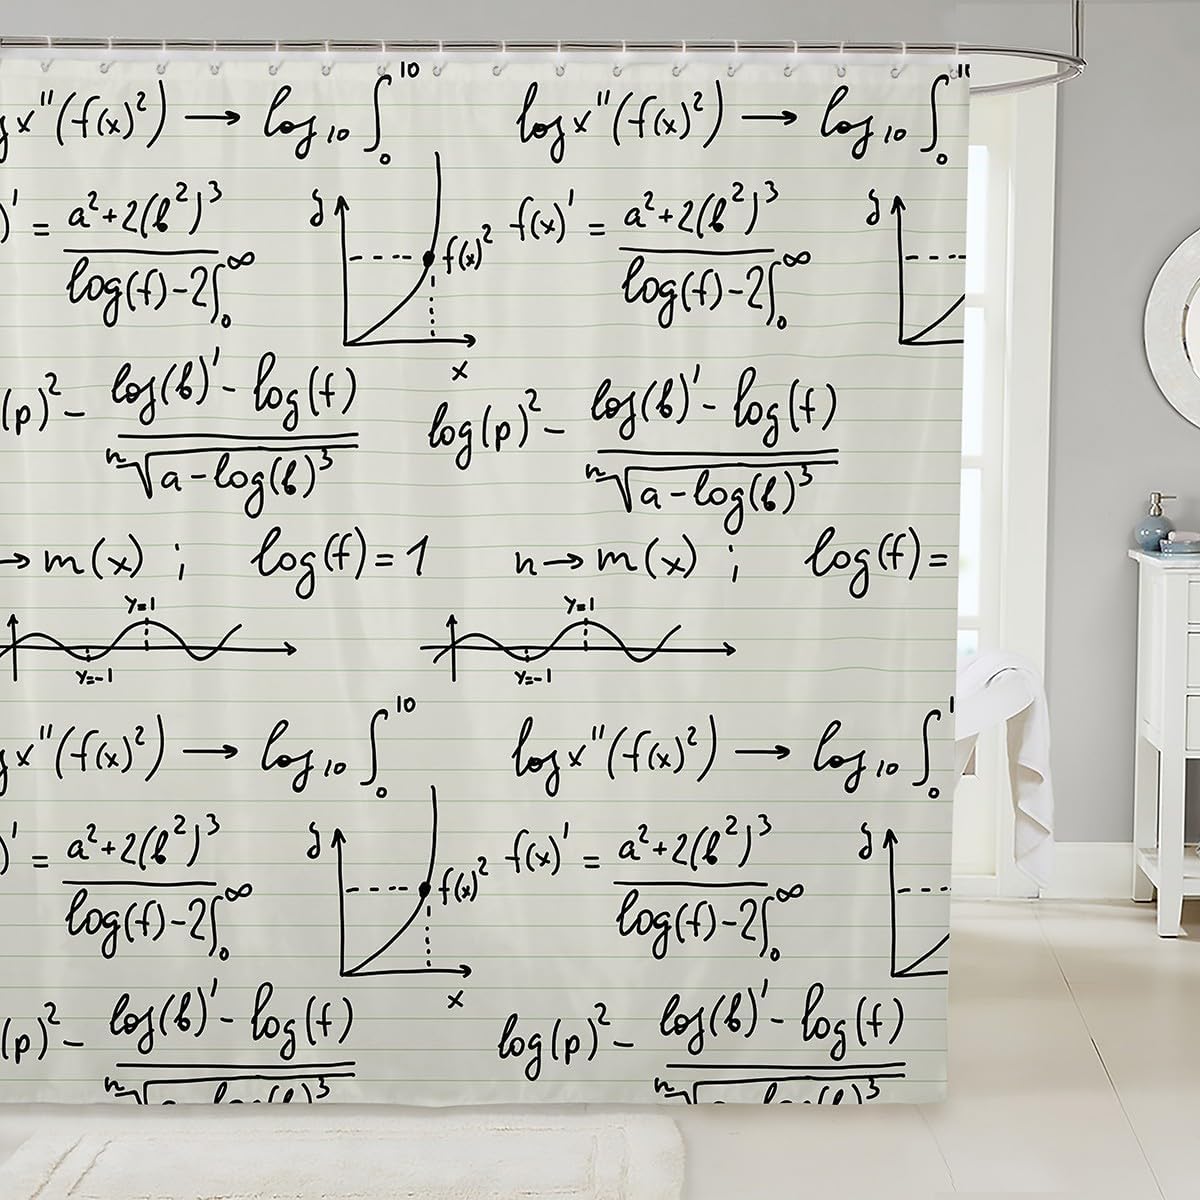 g x''(f(x)²) → log₁₀ ∫₀¹⁰ log x''(f(x)²) → log₁₀ ∫₀¹⁰
)' = a²+2(b²)³ / log(f)-2∫₀^∞ y f(x)² x f(x)' = a²+2(b²)³ / log(f)-2∫₀^∞ y
(p)² - log(b)' - log(f) / ⁿ√a-log(b)³ log(p)² - log(b)' - log(f) / ⁿ√a-log(b)³
→ m(x) ; log(f) = 1 n → m(x) ; log(f) =
y=1 y=1
y=-1 y=-1
g x''(f(x)²) → log₁₀ ∫₀¹⁰ log x''(f(x)²) → log₁₀ ∫₀¹
)' = a²+2(b²)³ / log(f)-2∫₀^∞ y f(x)² x f(x)' = a²+2(b²)³ / log(f)-2∫₀^∞ y
(p)² - log(b)' - log(f) / ⁿ√a-log(b)³ log(p)² - log(b)' - log(f) / ⁿ√a-log(b)³